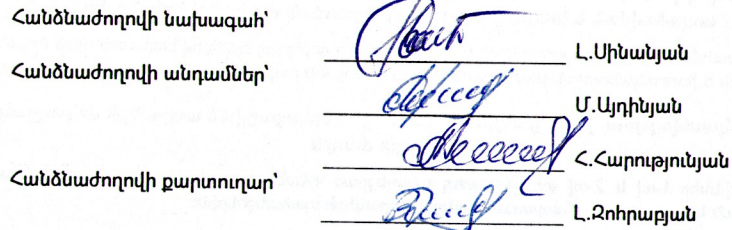 Հանձնաժողովի նախագահ՝
Լ.Սինանյան
Հանձնաժողովի անդամներ՝
Մ.Այդինյան
Հ.Հարությունյան
Հանձնաժողովի քարտուղար՝
Լ.Զոհրաբյան